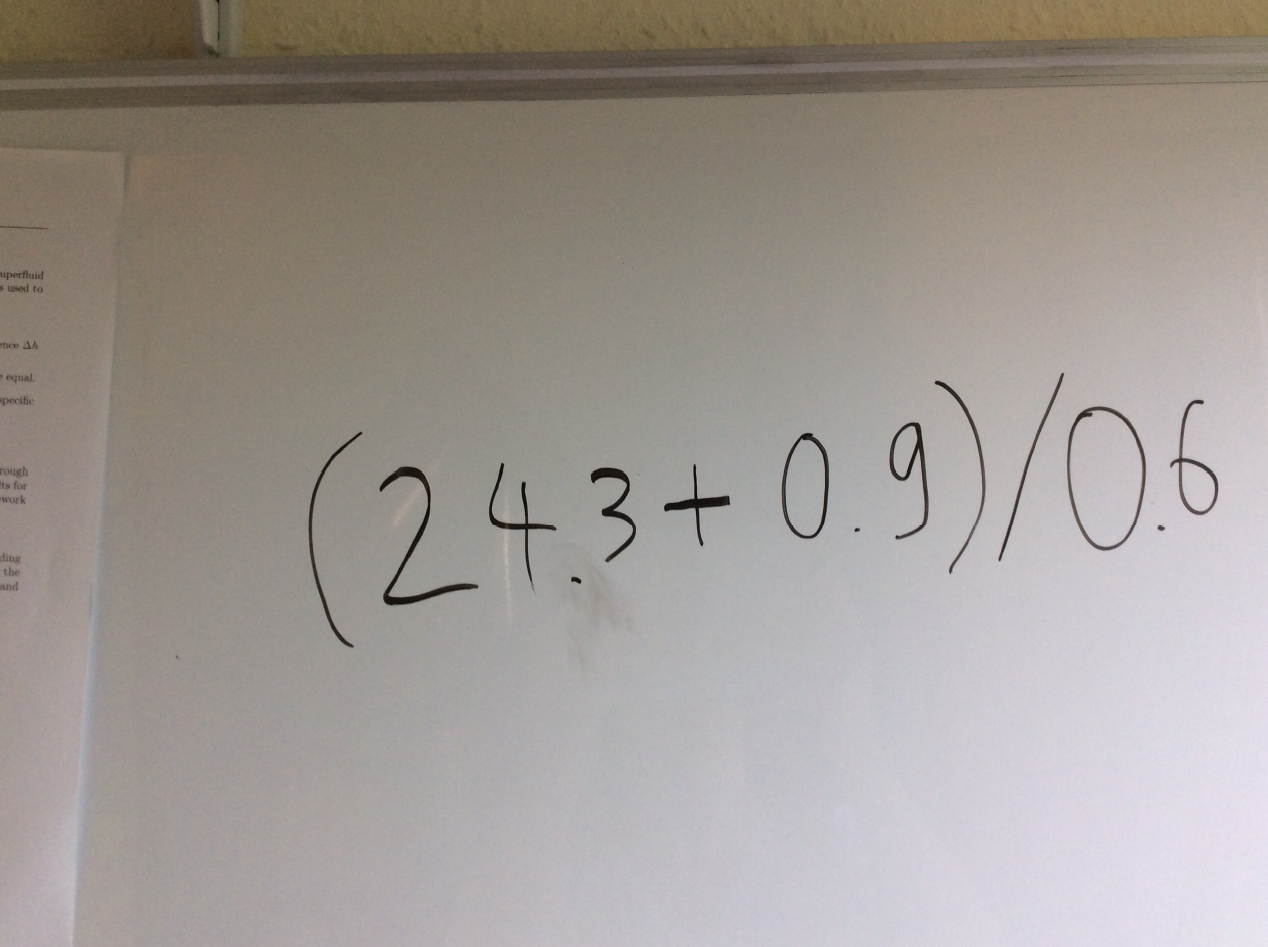 uperfluid
s used to
ence Δh
equal.
specific
rough
lts for
work
ding
the
and
(24.3+0.9)/0.6